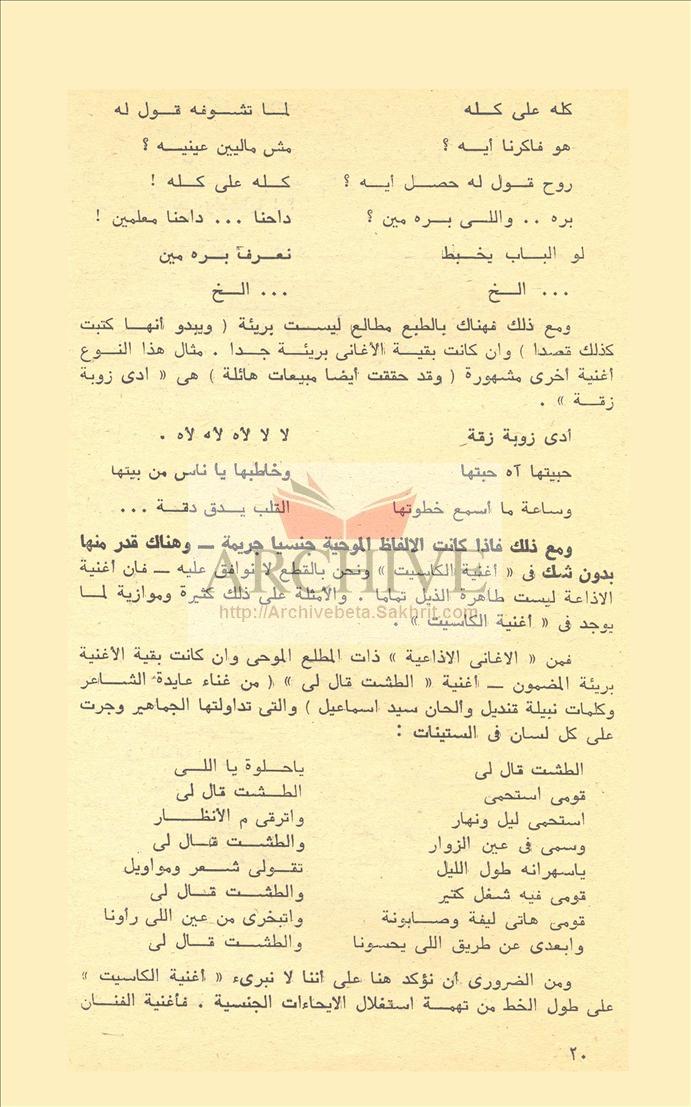 كله على كله لما تشوفه قول له
هو فاكرنا أيه ؟ مش ماليين عينيه ؟
روح قول له حصل أيه ؟ كله على كله !
بره .. واللى بره مين ؟ داحنا ... داحنا معلمين !
لو الباب يخبط نعرف بره مين
... الخ ... الخ
ومع ذلك فهناك بالطبع مطالع ليست بريئة ( ويبدو أنها كتبت
كذلك قصدا ) وان كانت بقية الأغانى بريئة جدا . مثال هذا النوع
أغنية أخرى مشهورة ( وقد حققت أيضا مبيعات هائلة ) هى « ادى زوبة
زقة » .
أدى زوبة زقة لا لا لاه لاه لاه .
حبيتها آه حبتها وخاطبها يا ناس من بيتها
وساعة ما أسمع خطوتها القلب يدق دقة ...
ومع ذلك فاذا كانت الالفاظ الموحية جنسيا جريمة ــ وهناك قدر منها
بدون شك فى « أغنية الكاسيت » ونحن بالقطع لا نوافق عليه ــ فان أغنية
الاذاعة ليست طاهرة الذيل تماما . والأمثلة على ذلك كثيرة وموازية لما
يوجد فى « أغنية الكاسيت » .
ARCHIVE
http://Archivebeta.Sakhrit.com
فمن « الاغانى الاذاعية » ذات المطلع الموحى وان كانت بقية الأغنية
بريئة المضمون ــ أغنية « الطشت قال لى » ( من غناء عايدة الشاعر
وكلمات نبيلة قنديل وألحان سيد اسماعيل ) والتى تداولتها الجماهير وجرت
على كل لسان فى الستينات :
الطشت قال لى ياحلوة يا اللى
قومى استحمى الطشت قال لى
استحمى ليل ونهار واترقى م الأنظار
وسمى فى عين الزوار والطشت قال لى
ياسهرانه طول الليل تقولى شعر ومواويل
قومى فيه شغل كتير والطشت قال لى
قومى هاتى ليفة وصابونة واتبخرى من عين اللى رأونا
وابعدى عن طريق اللى يحسونا والطشت قال لى
ومن الضرورى أن نؤكد هنا على أننا لا نبرىء « أغنية الكاسيت »
على طول الخط من تهمة استغلال الايحاءات الجنسية . فأغنية الفنان
٢٠